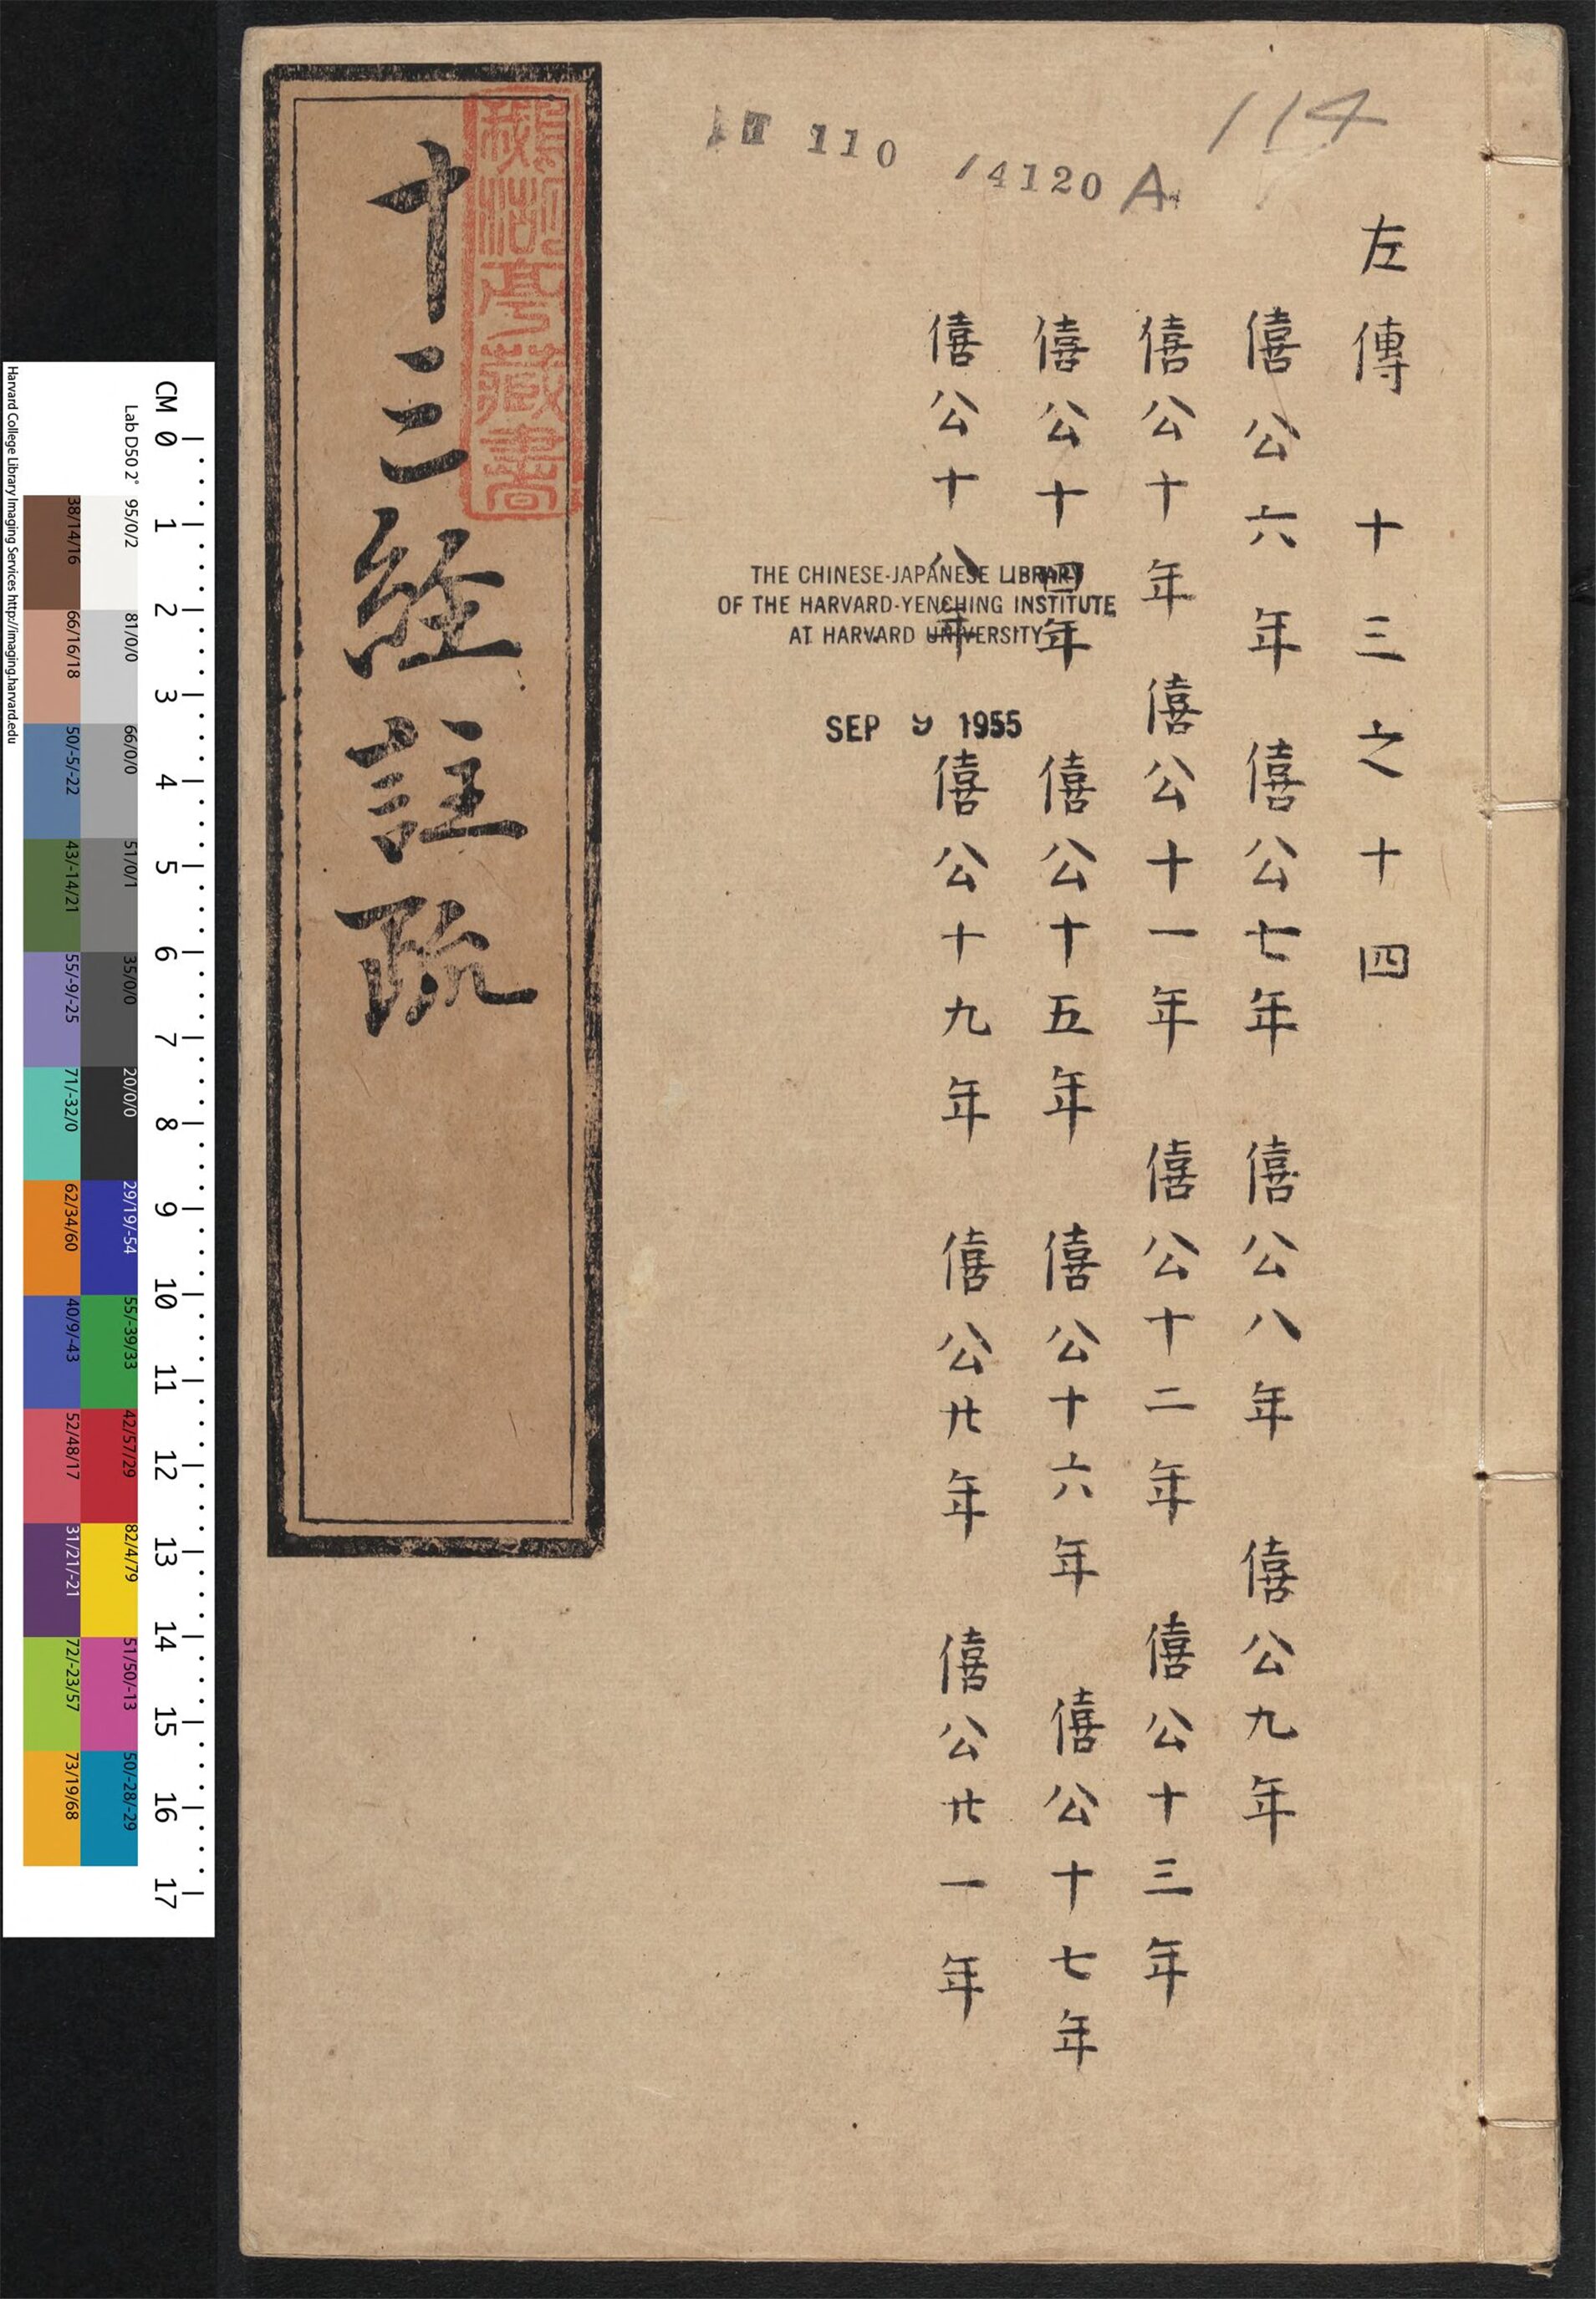 114
T 110 /4120 A
左傳 十三之十四
僖公六年 僖公七年 僖公八年 僖公九年
僖公十年 僖公十一年 僖公十二年 僖公十三年
僖公十四年 僖公十五年 僖公十六年 僖公十七年
僖公十八年 僖公十九年 僖公廿年 僖公廿一年
THE CHINESE-JAPANESE LIBRARY
OF THE HARVARD-YENCHING INSTITUTE
AT HARVARD UNIVERSITY
SEP 9 1955
十三経註疏
亭藏書
CM 0 1 2 3 4 5 6 7 8 9 10 11 12 13 14 15 16 17
Lab D50 2° 95/0/2 81/0/0 66/0/0 51/0/1 35/0/0 20/0/0 29/19/-54 55/-39/33 42/57/29 82/4/79 51/50/-13 50/-28/-29
38/14/16 66/16/18 50/-5/-22 43/-14/21 55/-9/-25 71/-32/0 62/34/60 40/9/-43 52/48/17 31/21/-21 72/-23/57 73/19/68
Harvard College Library Imaging Services http://imaging.harvard.edu